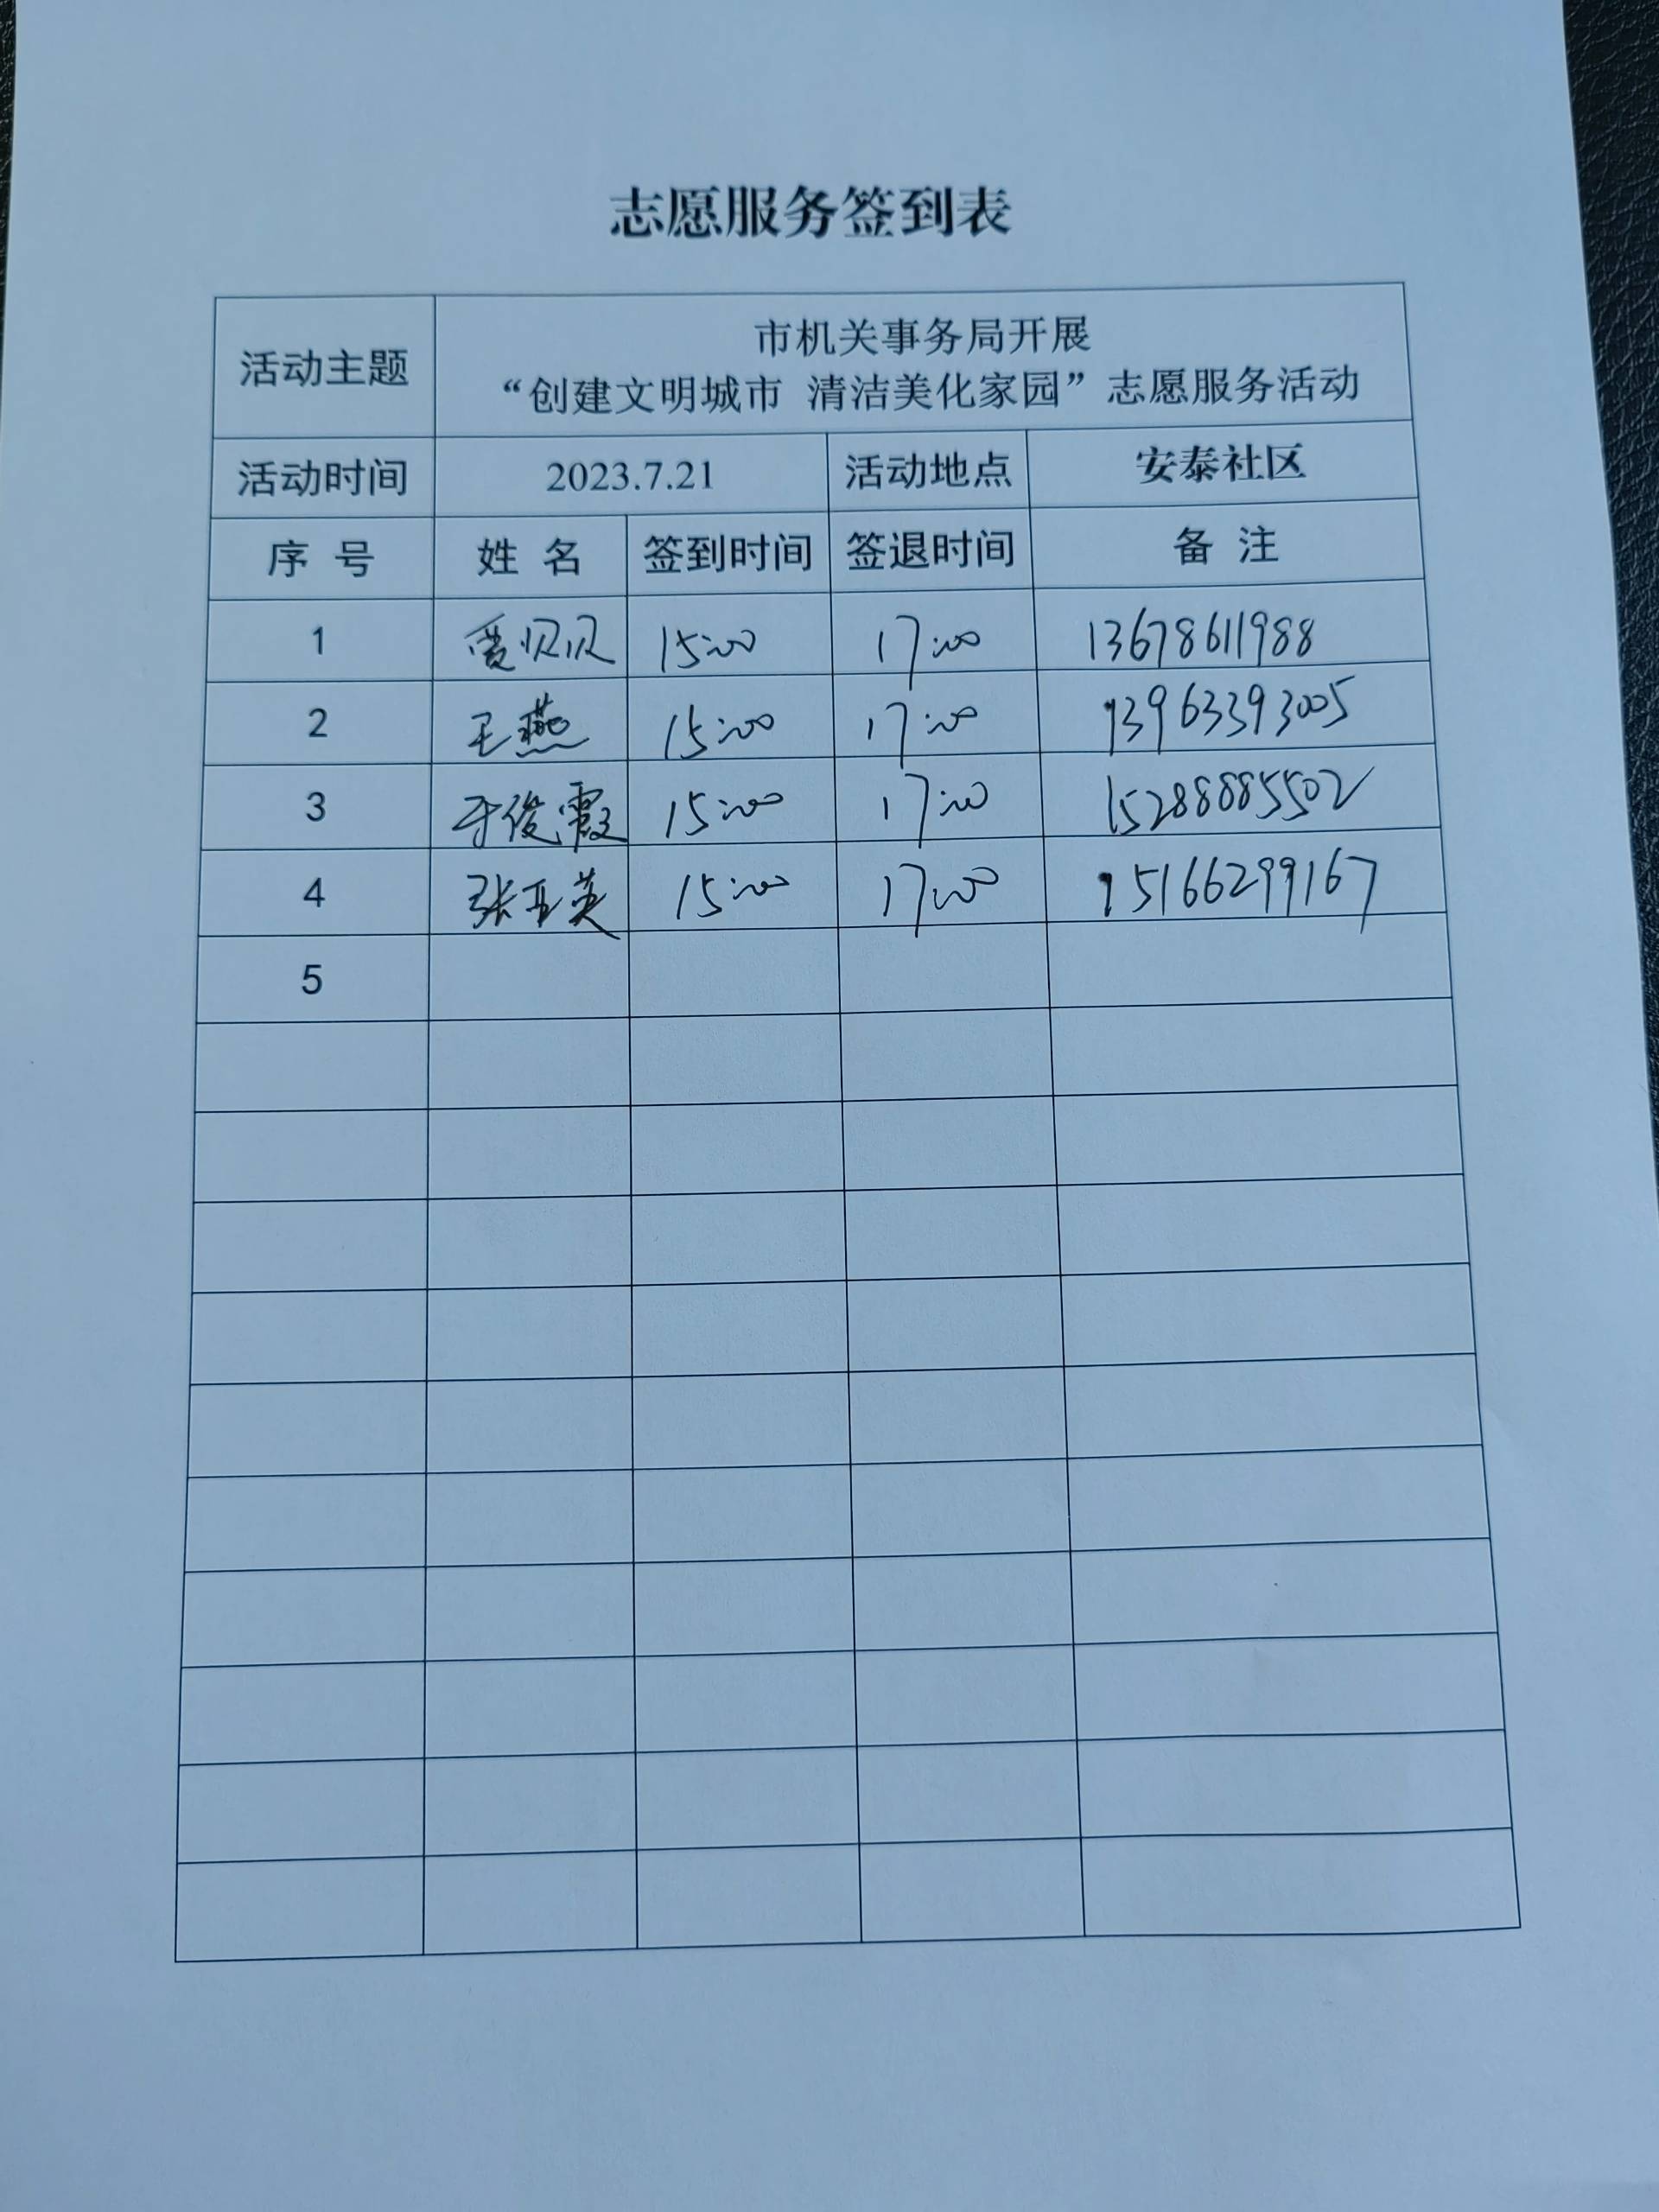 志愿服务签到表
活动主题
市机关事务局开展
“创建文明城市 清洁美化家园”志愿服务活动
活动时间 2023.7.21 活动地点 安泰社区
序 号 姓 名 签到时间 签退时间 备 注
1 贝贝 15:00 17:00 13678611988
2 王燕 15:00 17:00 13963393005
3 于俊霞 15:00 17:00 15288885502
4 张亚英 15:00 17:00 15166299167
5